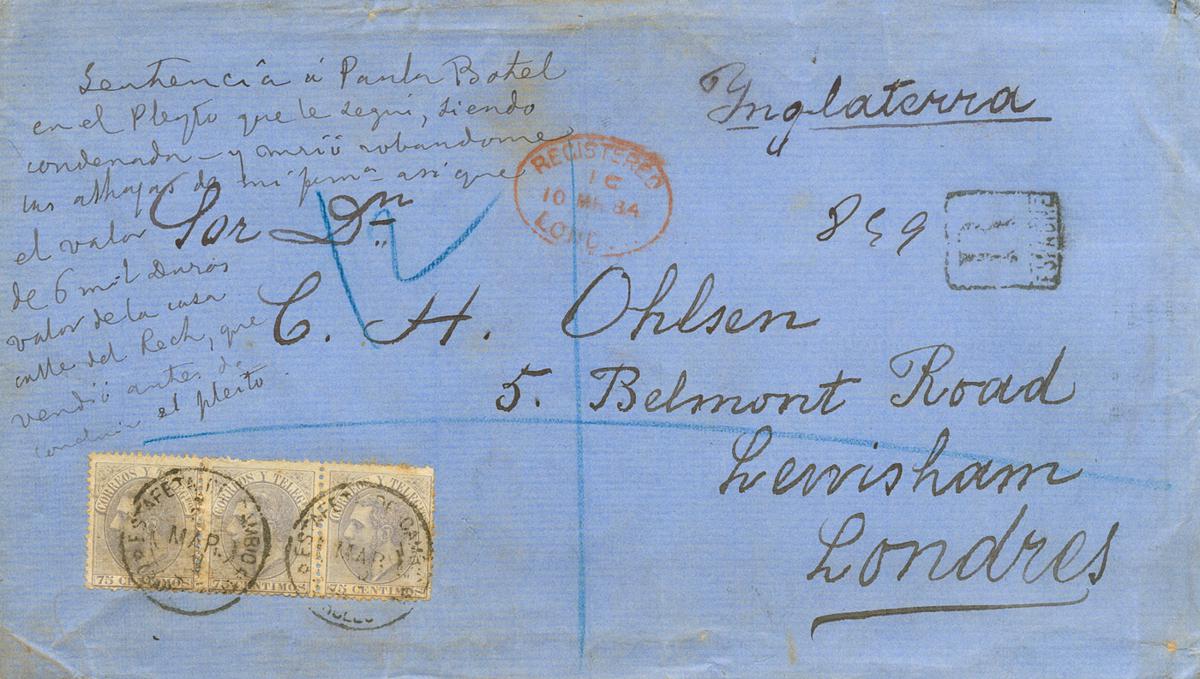 Sentencia á Paula Botel
en el Pleyto que le segui, siendo
condenada - y murió robandome
las alhajas de mi prima asi que
el valor
de 6 mil duros
valor de la casa
calle del Rech, que
vendió antes de
concluir el pleito
Ynglaterra
REGISTERED
10 MR 84
LOND
859
Sor Dn
C. H. Ohlsen
5. Belmont Road
Lewisham
Londres
CORREOS Y TELEG
75 CENTIMOS
CORREOS Y TELEG
75 CENTIMOS
CORREOS Y TELEG
75 CENTIMOS
ESTAFETA DE CAMBIO
MAR
ESTAFETA DE CAMBIO
MAR